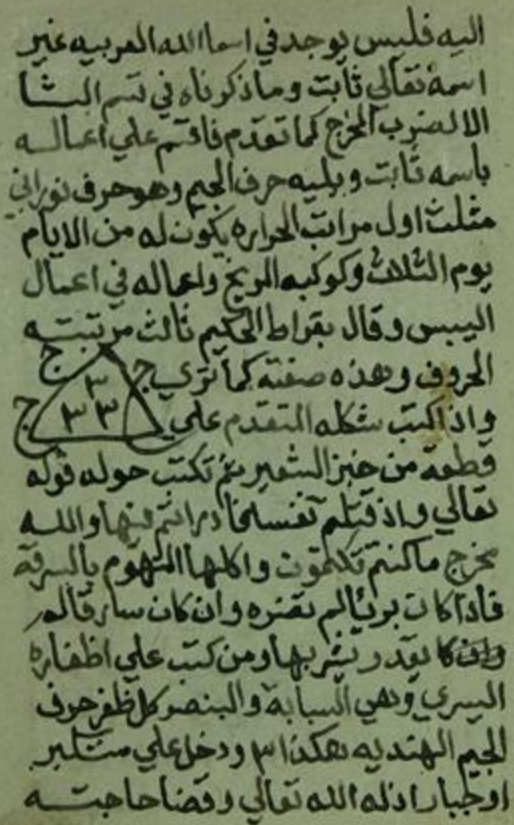 اليه فليس يوجد في اسما الله العربيه غير
اسمة تعالي ثابت وما ذكرناه في قسم الشا
الا لضرب المخرج كما تقدم فاقسم علي اعماله
باسمه ثابت ويليه حرف الجيم وهو حرف نوراني
مثلث اول مراتب الحراره يكون له من الايام
يوم الثلاث وكوكبه المريخ واعماله في اعمال
اليبس وقال بقراط الحكيم ثالث مرتبته
الحروف وهذه صفته كما تري ج ج ٣ ٣ ٣
واذا كتب شكله المتقدم علي ج
قطعة من خبز الشعير ثم تكتب حوله قوله
تعالي واذ قتلتم نفسا فادراتم فيها والله
مخرج ما كنتم تكتمون واكلها المتهوم بالسرقه
فاذا كان بريا لم تضره وان كان سارقا لم
يقدر يشربها ومن كتب علي اظفاره
اليسري وهي السبابة والبنصر كل ظفر حرف
الجيم الهنديه هكذا ٣ ودخل علي متكبر
او جبار اذله الله تعالي وقضا حاجته